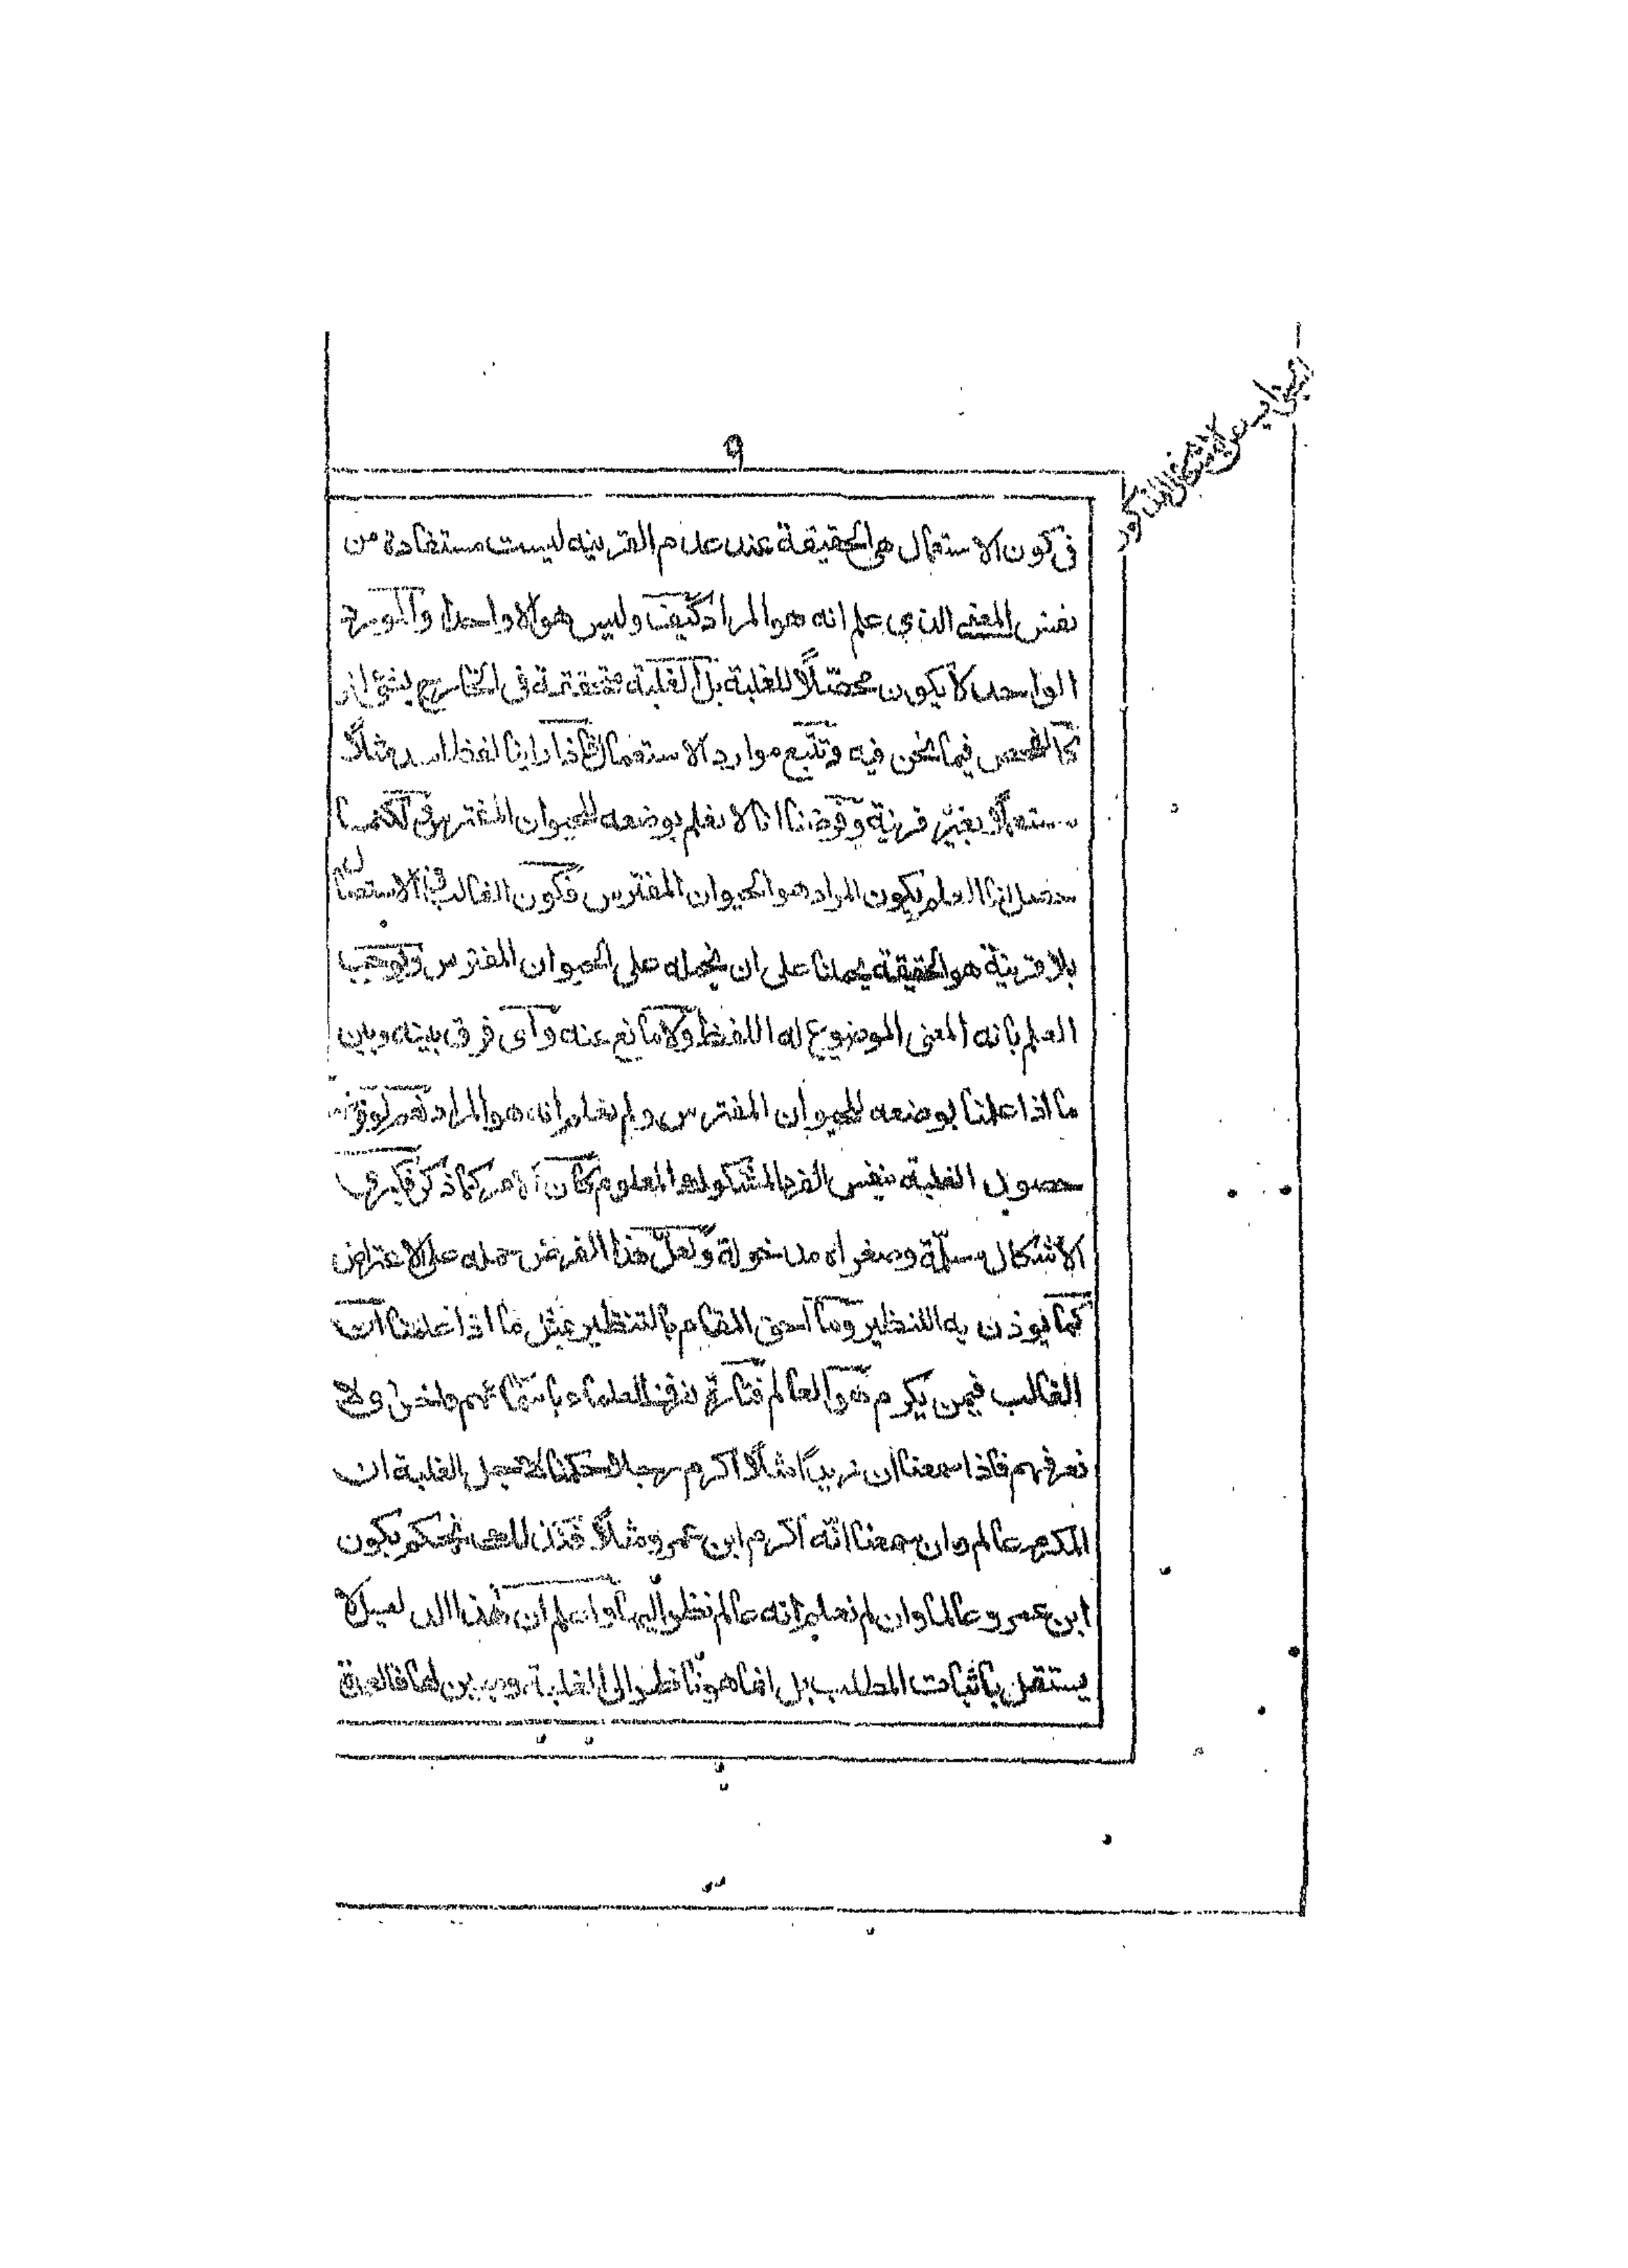 ٩
عن الاشكال المذكور
فى كون الاستعمال هى الحقيقة عند عدم القرينه ليست مستفادة من
نفس المعنى الذى علم انه هو المراد كيف وليس هو الا واحدا والموجود
الواحد لا يكون محصّلًا للغلبة بل الغلبة متحققة فى الخارج بشئ اخر
كالفحص فيما نحن فيه وتتبع موارد الاستعمال فاذا راينا لفظ اسد مثلًا
مستعملًا بغير قرينة وفرضنا انا لا نعلم بوضعه للحيوان المفترس لكن
حصل لنا العلم بكون المراد هو الحيوان المفترس فكون الغالب فى الاستعمال
بلا قرينة هو الحقيقة يحملنا على ان نحمله على الحيوان المفترس ويوجب
العلم بانه المعنى الموضوع له اللفظ ولا مانع عنه واى فرق بينه وبين
ما اذا علمنا بوضعه للحيوان المفترس ولم نعلم انه هو المراد نعم لو فرض
حصول الغلبة بنفس الفرد المشكوك المعلوم كان الامر كما ذكر فكبرى
الاشكال مسلّمة وصغراه مدخولة ولعلّ هذا الفرض حمله على الاعتراض
كما يوذن به التنظير وما احق المقام بالتنظير بمثل ما اذا علمنا ان
الغالب فيمن يكرم هو العالم فتارة نعرف العلماء باسمائهم واخرى لا
نعرفهم فاذا سمعنا ان زيدًا مثلًا اكرم رجلا حكمنا لاجل الغلبة ان
المكرم عالم وان سمعنا انّه اكرم ابن عمرو مثلًا فكذلك نحكم بكون
ابن عمرو عالما وان لم نعلم انه عالم نظرا اليها واعلم ان هذا الدليل لا
يستقل باثبات المطلب بل انما هو ناظر الى الغلبة وبدونها فالعمدة